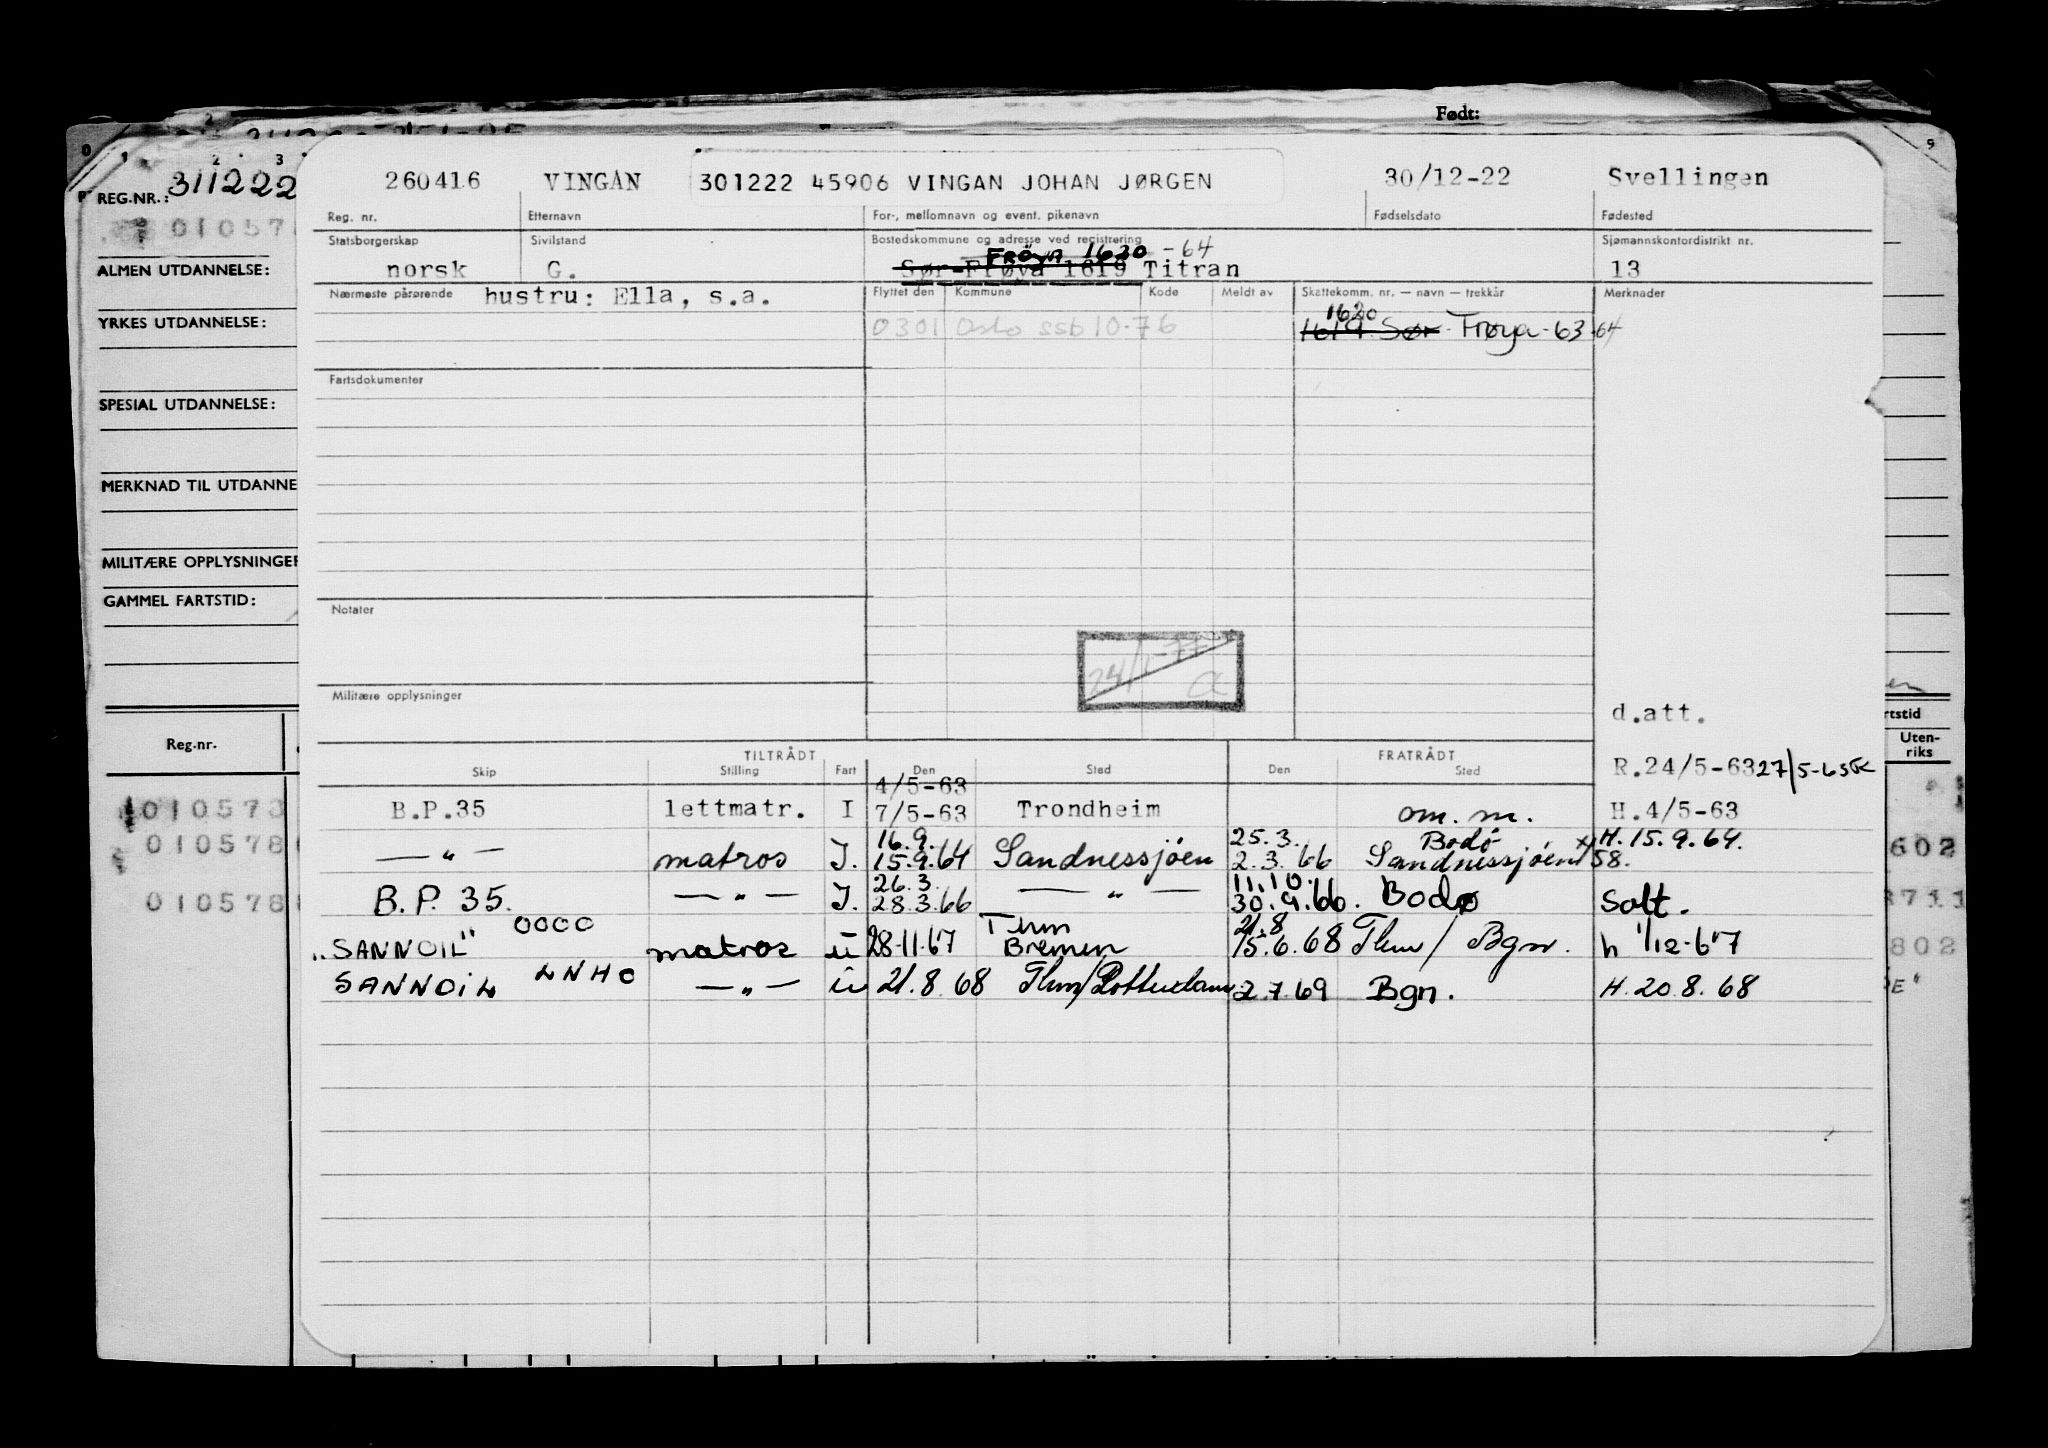 Født:
0 1 2 3 9
REG.NR.: 311222
260416 VINGAN 301222 45906 VINGAN JOHAN JØRGEN 30/12-22 Svellingen
Reg. nr. Etternavn For-, mellomnavn og event. pikenavn Fødselsdato Fødested
010578
Statsborgerskap Sivilstand Bostedskommune og adresse ved registrering Sjømannskontordistrikt nr.
FRÖYA 1620 -64
ALMEN UTDANNELSE: norsk G. Sør-Frøya 1619 Titran 13
Nærmeste pårørende hustru: Ella, s.a. Flyttet den Kommune Kode Meldt av Skattekomm. nr. — navn — trekkår Merknader
1620
YRKES UTDANNELSE: 0301 Oslo ssb 10-76 1619 Sør- Frøya-63-64
Fartsdokumenter
SPESIAL UTDANNELSE:
MERKNAD TIL UTDANNE
MILITÆRE OPPLYSNINGER
GAMMEL FARTSTID:
Notater
24/1-77
Militære opplysninger
d.att.
rtstid
Reg-nr. TILTRÅDT FRATRÅDT Uten-
riks
Skip Stilling Fart Den Sted Den Sted R.24/5-63 27/5-63
4/5-63
010573 B.P.35 lettmatr. I 7/5-63 Trondheim om. m. H.4/5-63
16.9. 25.3. Bodö H.15.9.64.
010578 — " — matros I. 15.9.64 Sandnessjøen 2.3.66 Sandnessjøen 58. 602
26.3. 11.10.
010578 B.P. 35. — " — I. 28.3.66 — " — 30.9.66. Bodø Salt. 711
0000 Thm 21.8
"SANNOIL" matros u 28-11-67 Bremen 15.6.68 Thm / Bgn. h 1/12-67 802
SANNOIL LNHC — " — u 21.8.68 Thm/Rotterdam 2.7.69 Bgn. H.20.8.68